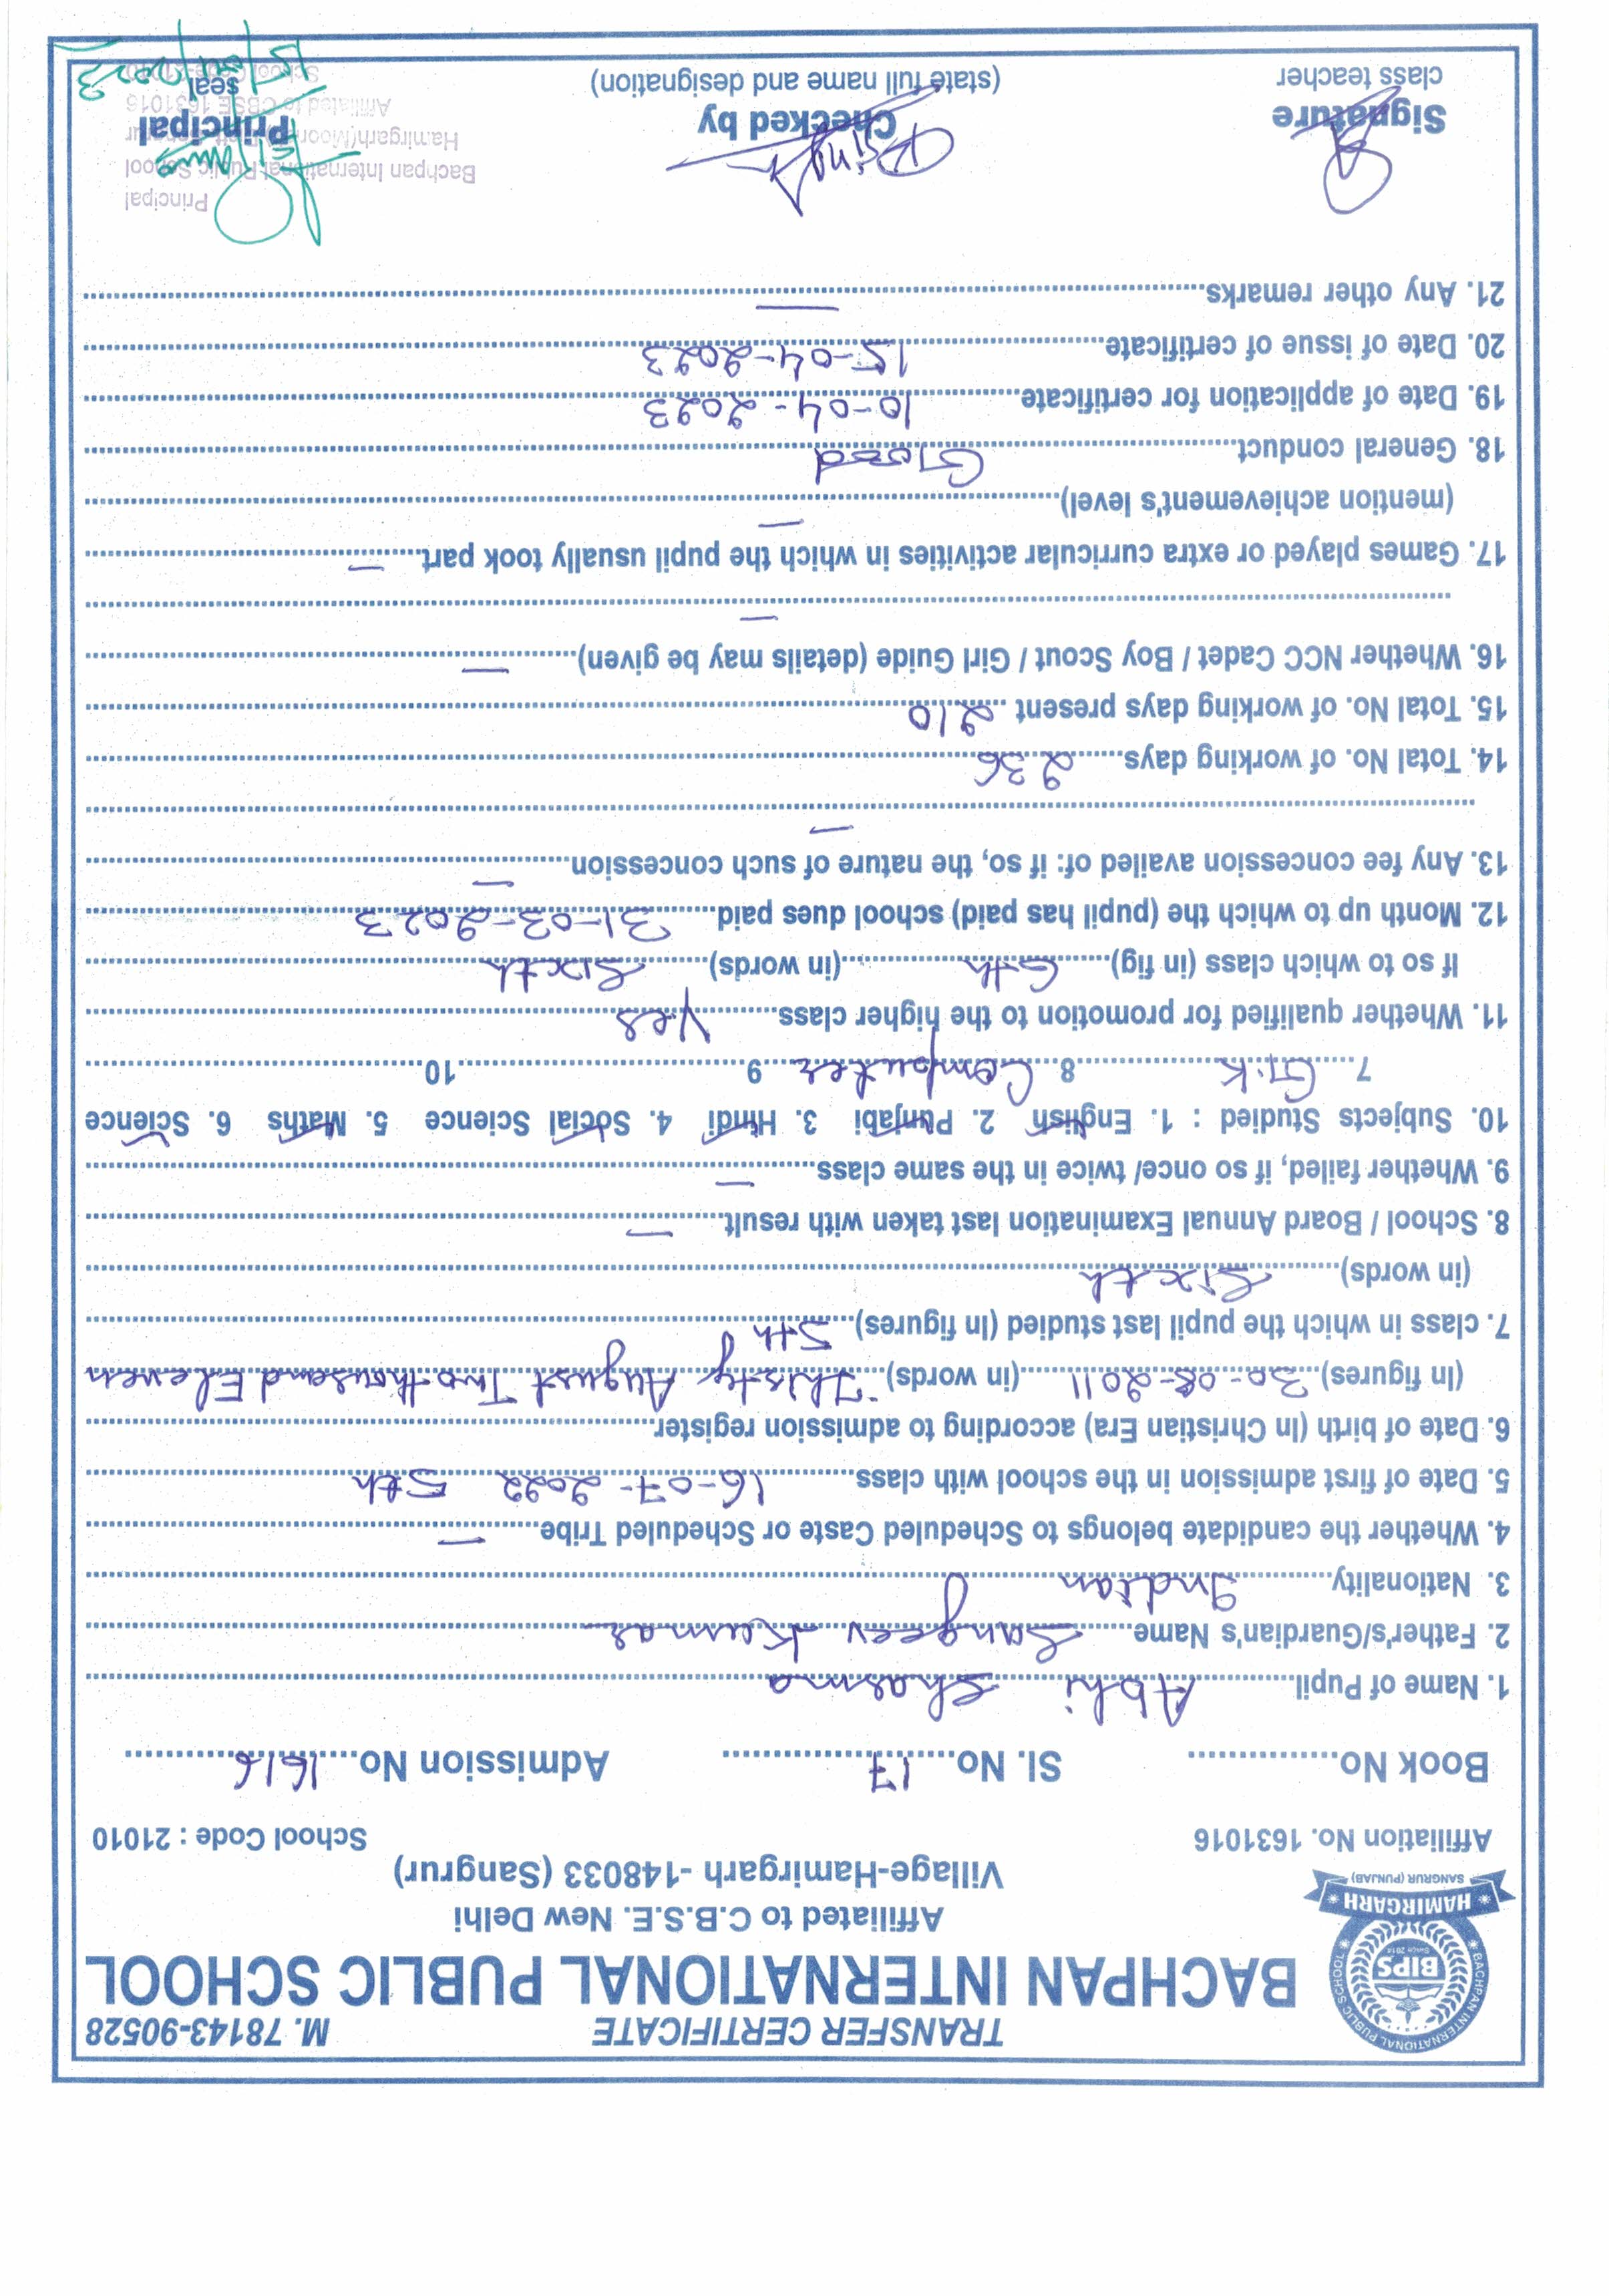 TRANSFER CERTIFICATE M. 78143-90528
BACHPAN INTERNATIONAL PUBLIC SCHOOL
BACHPAN INTERNATIONAL PUBLIC SCHOOL
BIPS
Since 2014
HAMIRGARH
SANGRUR (PUNJAB)
Affiliated to C.B.S.E. New Delhi
Village-Hamirgarh -148033 (Sangrur)
Affiliation No. 1631016 School Code : 21010
Book No. Sl. No. 17 Admission No. 1616
1. Name of Pupil Abhi Sharma
2. Father's/Guardian's Name Sangeev Kumar
3. Nationality Indian
4. Whether the candidate belongs to Scheduled Caste or Scheduled Tribe —
5. Date of first admission in the school with class 16-07-2022 5th
6. Date of birth (In Christian Era) according to admission register
(In figures) 30-08-2011 (in words) Thirty August Two thousend Eleven
7. class in which the pupil last studied (In figures) 5th
(in words) Sixth
8. School / Board Annual Examination last taken with result —
9. Whether failed, if so once/ twice in the same class —
10. Subjects Studied : 1. English 2. Punjabi 3. Hindi 4. Social Science 5. Maths 6. Science
7 G.K 8 Computer 9 10
11. Whether qualified for promotion to the higher class Yes
If so to which class (in fig) 6th (in words) Sixth
12. Month up to which the (pupil has paid) school dues paid 31-03-2023
13. Any fee concession availed of: if so, the nature of such concession —
—
14. Total No. of working days 236
15. Total No. of working days present 210
16. Whether NCC Cadet / Boy Scout / Girl Guide (details may be given) —
—
17. Games played or extra curricular activities in which the pupil usually took part. —
(mention achievement's level) —
18. General conduct Good
19. Date of application for certificate 10-04-2023
20. Date of issue of certificate 15-04-2023
21. Any other remarks —
Principal
Bachpan International Public School
Affiliated to CBSE 1631016
Signature Checked by Principal
class teacher (state full name and designation) seal
15/04/2023